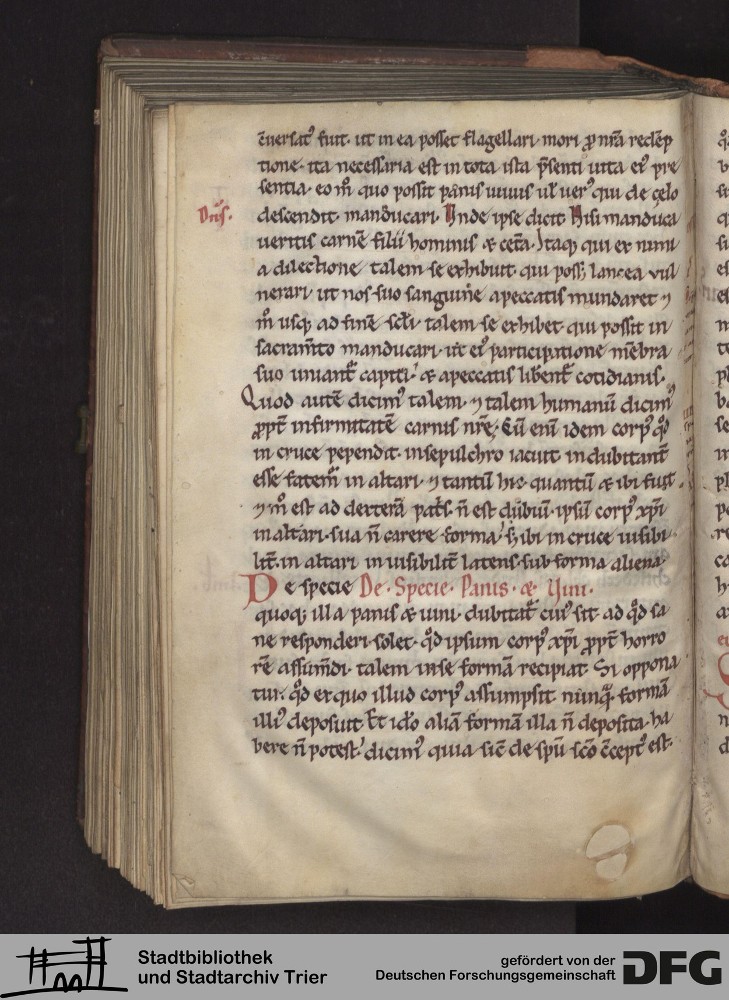 c̄uersat᷒ fuit. ut in ea posset flagellari. mori ꝓ nr̄a redēp
tione. ita necessaria est in tota ista p̄senti uita ei᷒ pre
sentia. eo m̊ quo possit panis uiuus ul̓ uer᷒ qui de celo
Dn̄s.
descendit. manducari. Unde ipse dicit Nisi manduca
ueritis carnē filii hominis & ceta᷒. Itaq; qui ex nimi
a dilectione talem se exhibuit qui poss; lancea uul
nerari ut nos suo sanguine a peccatis mundaret ⁊
m̊ usq; ad finē scl̓i talem se exhibet qui possit in
sacram̄to manducari. ut ei᷒ participatione mēbra
suo uniant᷑ capiti. & a peccatis libent᷑ cotidianis.
Quod autē dicim᷒ talem. ⁊ talem humanū dicim᷒
ꝓpt̄ infirmitatē carnis nr̄e; Cū eni idem corp᷒ qd̓
in cruce pependit. in sepulchro iacuit. indubitant̄
esse fatem᷑ in altari. ⁊ tantū hic quantū & ibi fuit
⁊ m̊ est ad dexterā pat̄s. n̄ est dubiū. ipsū corp᷒ xp̄i
in altari. sua n̄ carere forma. s; ibi in cruce uisibi
lit̄. in altari inuisibilit̄ latens. sub forma aliena.
De specie De. Specie. Panis. & Uini.
quoq; illa panis & uini. dubitat᷑ cui᷒ sit. ad qd̓ sa
ne responderi solet. qd̓ ipsum corp᷒ xp̄i ꝓpt̄ horro
rē assum̄di. talem in se formā recipiat. Si oppona
tur. qd̓ ex quo illud corp᷒ assumpsit nunq̄. formā
illi᷒ deposuit. Et id̓o aliā formā illa n̄ deposita. ha
bere n̄ potest. dicim᷒ quia sic̄ de sp̄u sc̄o c̄cept᷒ est.
Stadtbibliothek
und Stadtarchiv Trier
gefördert von der
Deutschen Forschungsgemeinschaft
DFG